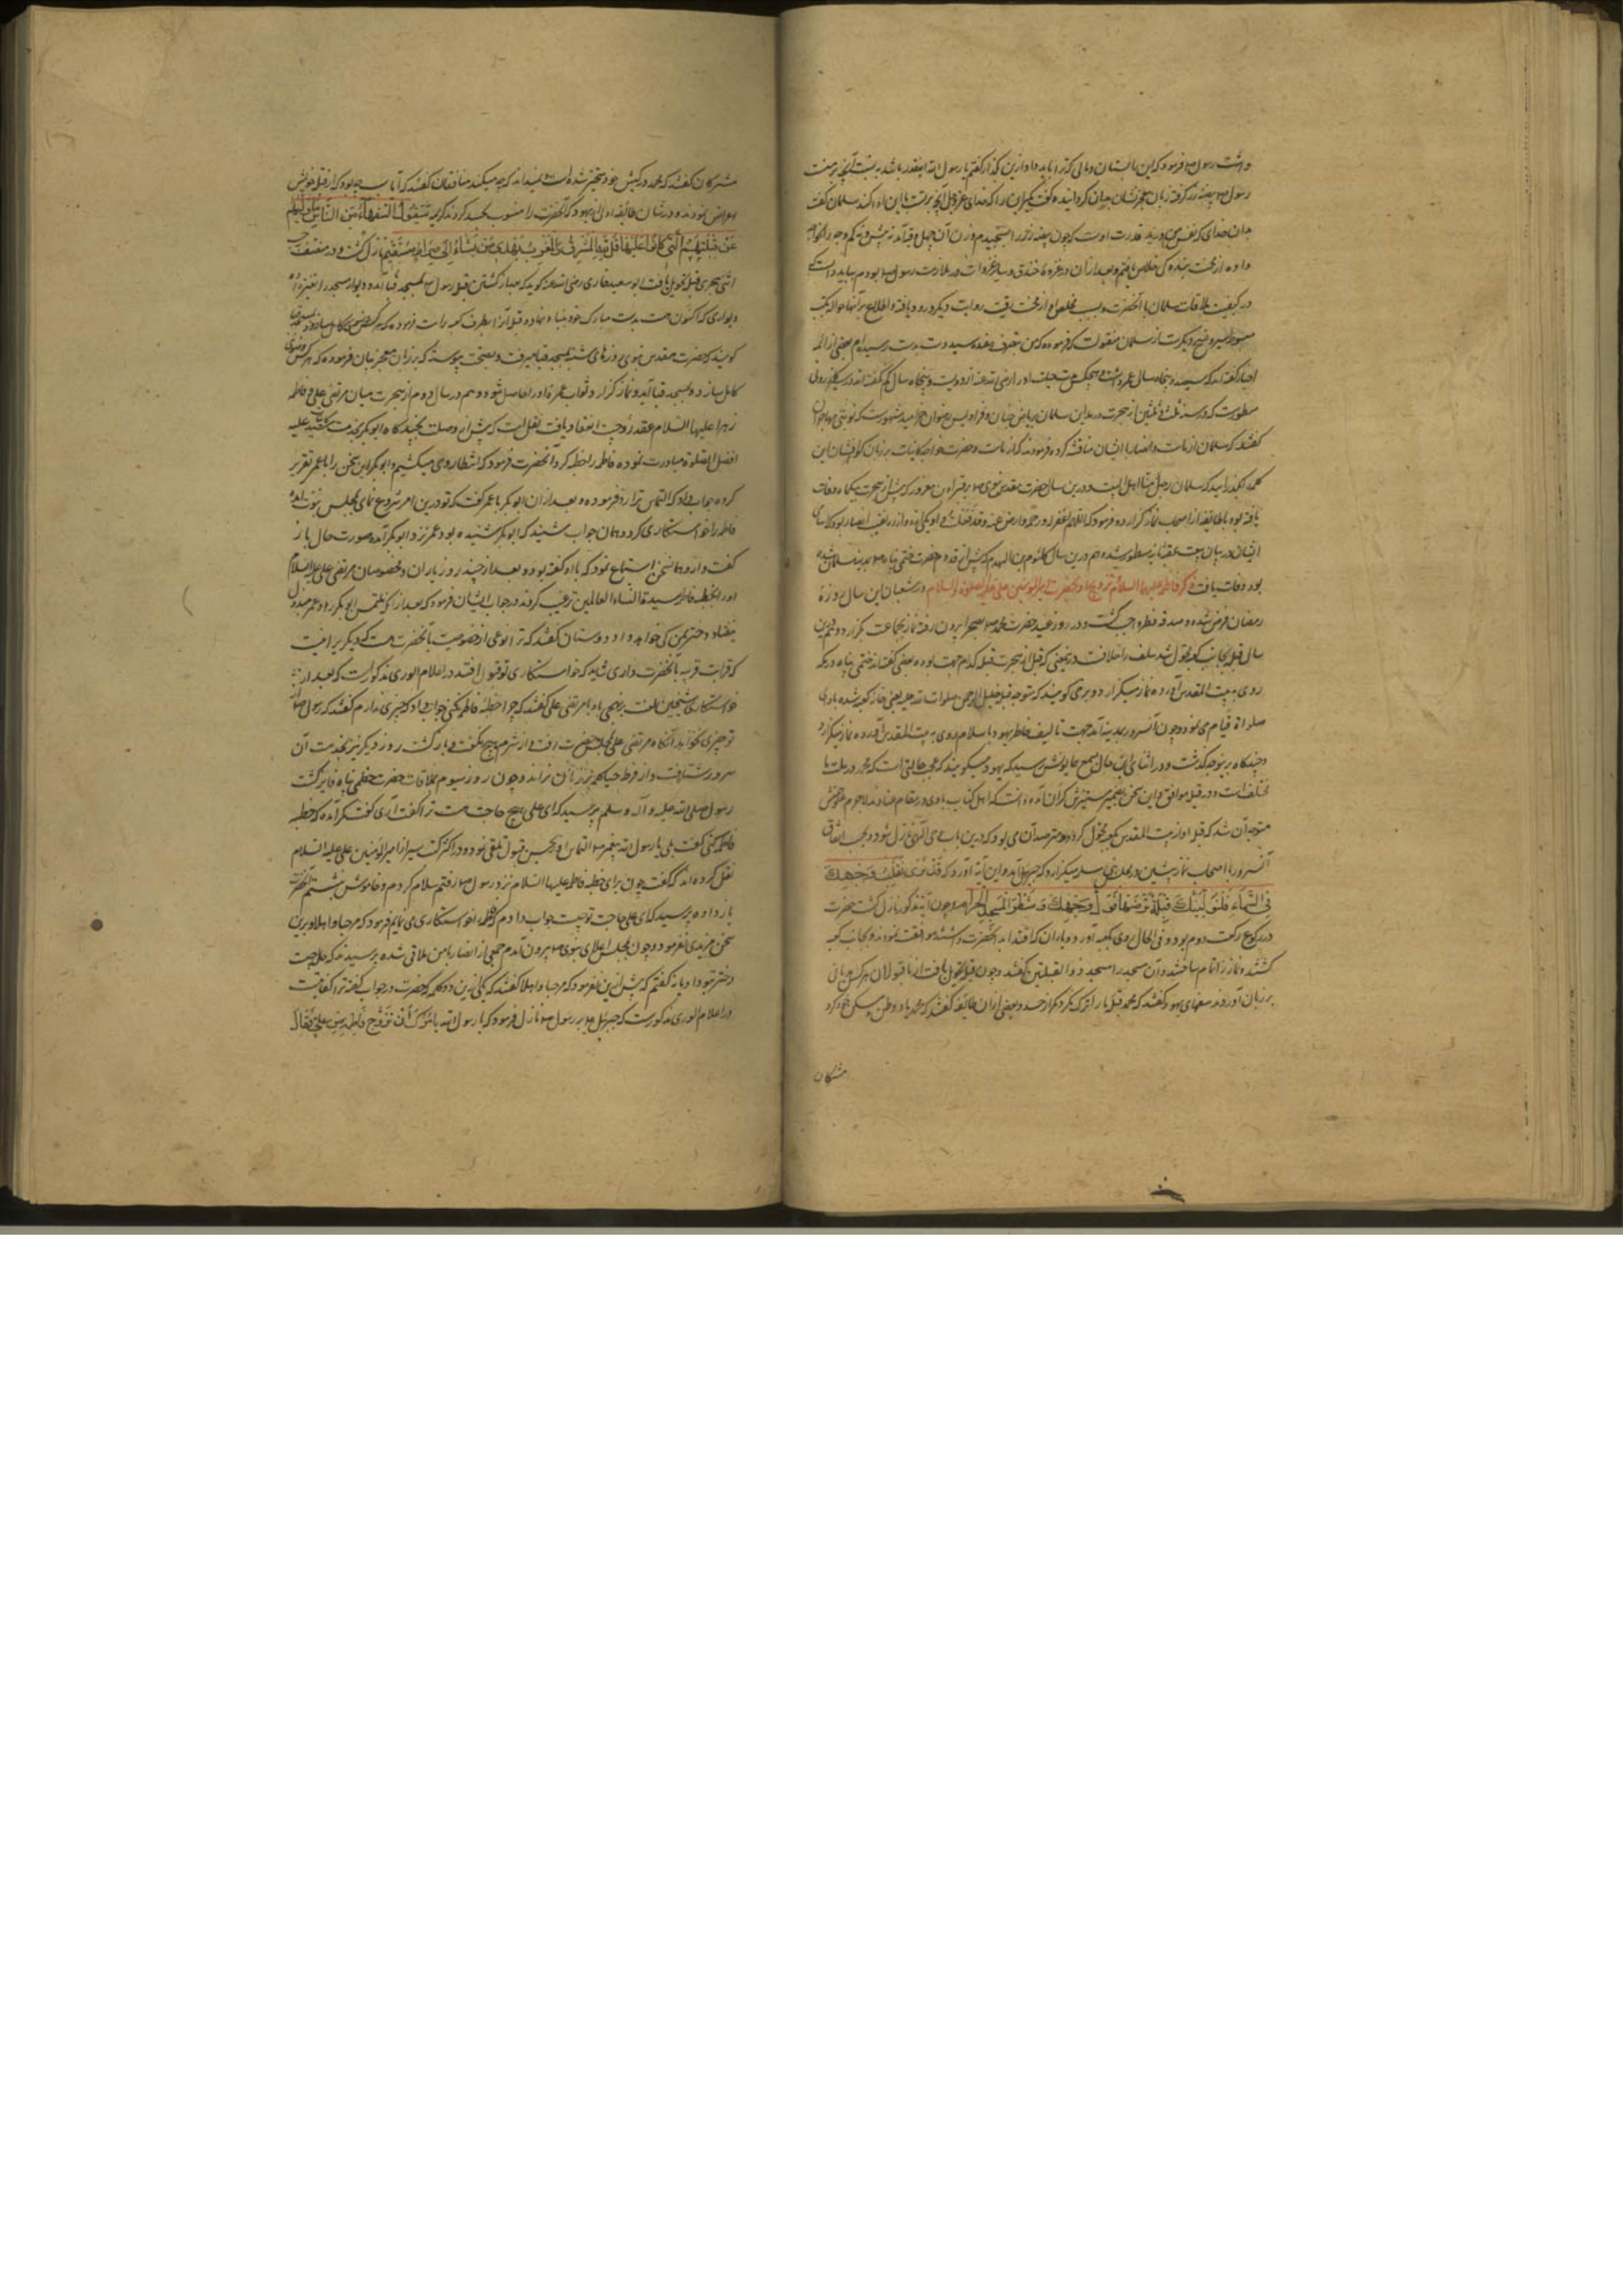 داشت رسول فرمود که این را بستان و مالی که ترا باید داد ازین گذار گفتم یا رسول الله اینقدر باشد به نسبت آنچه بر منست
رسول بیضه زر گرفته زبان معجز نشان بدان گردانیده گفت بگیر این را که خدای عز و جل آنچه بر تست باین ادا کند سلمان گفت
بدان خدای که نفس من در ید قدرت اوست که چون بیضه زر را سنجیدم وزن آن چهل وقیه آمد نه بیش و نه کم وجه را بخواجه
داده از محنت بندگی خلاص یافتم و بعد از آن در غزوه خندق و سایر غزوات در ملازمت رسول بودم بباید دانست که
در کیفیت ملاقات سلمان با آنحضرت و سبب تخلص او از محنت رقیت روایت دیگر ورود یافته و اطلاع بر آنها حواله بکتب
مبسوط سیر و تواریخ دیگرست از سلمان منقولست که فرموده که من بتصرف هفده سید دست بدست رسیده‌ام بعضی از ائمه
اخبار گفته‌اند که سیصد و پنجاه سال عمر داشت و هیچکس مدت حیات او را رضی الله عنه از دویست و پنجاه سال کم نگفته‌اند
مسطورست که در سنه ثلث و ثلثین از هجرت در مداین سلمان بریاض جنان و فرادیس رضوان خرامید مشهورست که نوبتی مهاجران
گفتند که سلمان از ماست و انصار با ایشان مناقشه کرده فرمودند که از ماست و حضرت خواجه کاینات بر زبان گوهرفشان این
کلمه گذرانید که سلمان رجل منا اهل البیت و درین سال حضرت مقدس نبوی بر قبر براء بن معرور که پیش از هجرت بیکماه وفات
یافته بود با طایفه از اصحاب نماز گزارده فرمود که اللهم اغفر له و ارحمه و ارض عنه و قد فعلت و او یکی از دوازده نقیب انصار بود که اسامی
ایشان در بیان بیعت عقبه ثانیه مسطور شده هم درین سال کلثوم بن الهدم که پیش از قدوم حضرت ختمی پناه بمدینه مسلمان شده
بود وفات یافت ذکر فاطمه علیها السلام تزویج با حضرت امیر المؤمنین علی علیه الصلوة و السلام در شعبان این سال روزه
رمضان فرض شده و صدقه فطر واجب گشت و در روز عید حضرت محمد بصحرا بیرون رفته نماز بجماعت بگزارد و هم درین
سال قبله بجانب کعبه تحویل شد سلف را خلافست درین معنی که قبل از هجرت قبله کدام جهت بوده بعضی گفته‌اند ختمی پناه در مکه
روی به بیت المقدس آورده نماز میگزارد و برخی گویند که متوجه قبله خلیل الرحمن صلوات الله علیه یعنی خانه کعبه شده بادای
صلواة قیام می‌نمود و چون آنسرور بمدینه آمد جهت تالیف خاطر یهود باسلام روی به بیت المقدس آورده نماز میگزارد
و چندگاه برینوجه گذشت و در اثنای این حال بسمع همایونش رسید که یهود میگویند که عجب حالتی است که محمد در ملت با ما
مختلف است و در قبله موافق و این سخن بر ضمیر منیرش گران آمده دانست که اهل کتاب با وی در مقام عنادند لاجرم خاطرش
متوجه آن شد که قبله او از بیت المقدس بکعبه تحول گردد و مترصد آن می‌بود که درین باب وحی الهی نازل شود و بحسب اتفاق
آنسرور با اصحاب نماز پیشین در محله بنی سلمه میگزارد که جبرئیل آمد و این آیه آورد که قَدْ نَرَى تَقَلُّبَ وَجْهِكَ
فِي السَّمَاءِ فَلَنُوَلِّيَنَّكَ قِبْلَةً تَرْضَاهَا فَوَلِّ وَجْهَكَ شَطْرَ الْمَسْجِدِ الْحَرَامِ و چون آیه مذکور نازل گشت حضرت
در رکوع رکعت دوم بود و فی الحال روی بکعبه آورد و یاران که اقتدا به آنحضرت داشتند موافقت نمودند و بجانب کعبه
گشتند و نماز را تمام ساختند و آن مسجد را مسجد ذو القبلتین گفتند و چون قبله تحویل یافت از ناقبولان هر کس هذیانی
بر زبان آوردند سفهای یهود گفتند که محمد قبله ما را ترک نکرد مگر از حسد و بعضی از آن طایفه گفتند که محمد یاد وطن و مسکن خود کرد
مشرکان
مشرکان گفتند که محمد در کیش خود متحیر شده است نمیداند که چه میکند منافقان گفتند که آیا سبب چه بود که از قبله خویش
اعراض نمودند و در شان طایفه اولی از یهود که آنحضرت را منسوب بحسد کردند کریمه سَيَقُولُ السُّفَهَاءُ مِنَ النَّاسِ مَا وَلَّاهُمْ
عَنْ قِبْلَتِهِمُ الَّتِي كَانُوا عَلَيْهَا قُلْ لِلَّهِ الْمَشْرِقُ وَالْمَغْرِبُ يَهْدِي مَنْ يَشَاءُ إِلَى صِرَاطٍ مُسْتَقِيمٍ نازل گشت و در منتصف رجب
اثنی هجری قبله تحویل یافت ابو سعید خدری رضی الله عنه گوید که بعد از گشتن قبله رسول بمسجد قبا آمده دیوار مسجد را تغییر داد
دیواری که اکنون هست بدست مبارک خود بنیاد نهاده قبله آنرا بطرف کعبه راست فرموده که هر کس وضوی کامل سازد
گویند که حضرت مقدس نبوی روزهای شنبه بمسجد قبا میرفت و بصحت پیوسته که بر زبان معجز بیان فرموده که هر کس وضوی
کامل سازد و بمسجد قبا آید و نماز گزارد ثواب عمره او را حاصل شود و هم در سال دوم از هجرت میان مرتضی علی و فاطمه
زهرا علیها السلام عقد زوجیت انعقاد یافت نقل است که پیش از وصلت بچند گاه ابو بکر بخدمت سید کاینات علیه
افضل الصلوة مبادرت نموده فاطمه را خطبه کرد آنحضرت فرمود که انتظار وحی میکشیم و ابو بکر این سخن را با عمر تقریر
کرده جواب داد که التماس ترا رد فرموده و بعد از آن ابو بکر با عمر گفت که تو درین امر شروع نمای بمجلس نبوت آمده
فاطمه را خواستگاری کرد و همان جواب شنید که ابو بکر شنیده بود عمر نزد ابو بکر آمده صورت حال باز
گفت و ازو همان سخن استماع نمود که با او گفته بود و بعد از چند روز یاران و مخصوصان مرتضی علی علیه السلام
او را بخطبه فاطمه سیدة النساء العالمین ترغیب کردند در جواب ایشان فرمود که بعد از آنکه ملتمس ابو بکر و عمر مبذول
نیفتاد دختر بمن کی خواهد داد دوستان گفتند که ترا نوعی از خصوصیت با آنحضرت هست که دیگریرا نیست
که قرابت قریبه با آنحضرت داری شاید که خواستگاری تو قبول افتد در اعلام الوری مذکورست که بعد از
خواستگاری شیخین بعضی با مرتضی علی گفتند که چرا خطبه فاطمه نکنی جواب داد که چیزی ندارم گفتند که رسول از
تو چیزی نخواهد آنگاه مرتضی علی بمجلس حضرت رفت و از شرم هیچ نگفت و باز گشت روز دیگر نیز بخدمت آن
سرور شتافت و از فرط حیا کلمه بر زبان نراند و چون روز سیوم بملاقات حضرت ختمی پناه فایز گشت
رسول صلی الله علیه و آله و سلم پرسید که ای علی هیچ حاجت هست ترا گفت آری گفت مگر آمده که خطبه
فاطمه کنی گفت بلی یا رسول الله پیغمبر التماس او بحسن قبول تلقی نمود و در اکثر کتب سیر از امیر المؤمنین علی علیه السلام
نقل کرده‌اند که گفت چون برای خطبه فاطمه علیها السلام نزد رسول رفتم سلام کردم و خاموش بنشستم آنحضرت
باز داده پرسید که ای علی حاجت تو چیست جواب دادم که فاطمه را خواستگاری می‌نمایم فرمود که مرحبا و اهلا و برین
سخن مزیدی نفرمود و چون از مجلس اعلای نبوی بیرون آمدم جمعی از انصار با من ملاقی شده پرسیدند که حال چیست
دختر بتو داد یا نه گفتم که بیش ازین نفرمود که مرحبا و اهلا گفتند که یکی ازین دو کلمه که حضرت در جواب گفته ترا کفایتست
در اعلام الوری مذکورست که جبرئیل بر رسول نازل فرمود که یا رسول الله یأمرک أن تزوج فاطمة من علی فقال